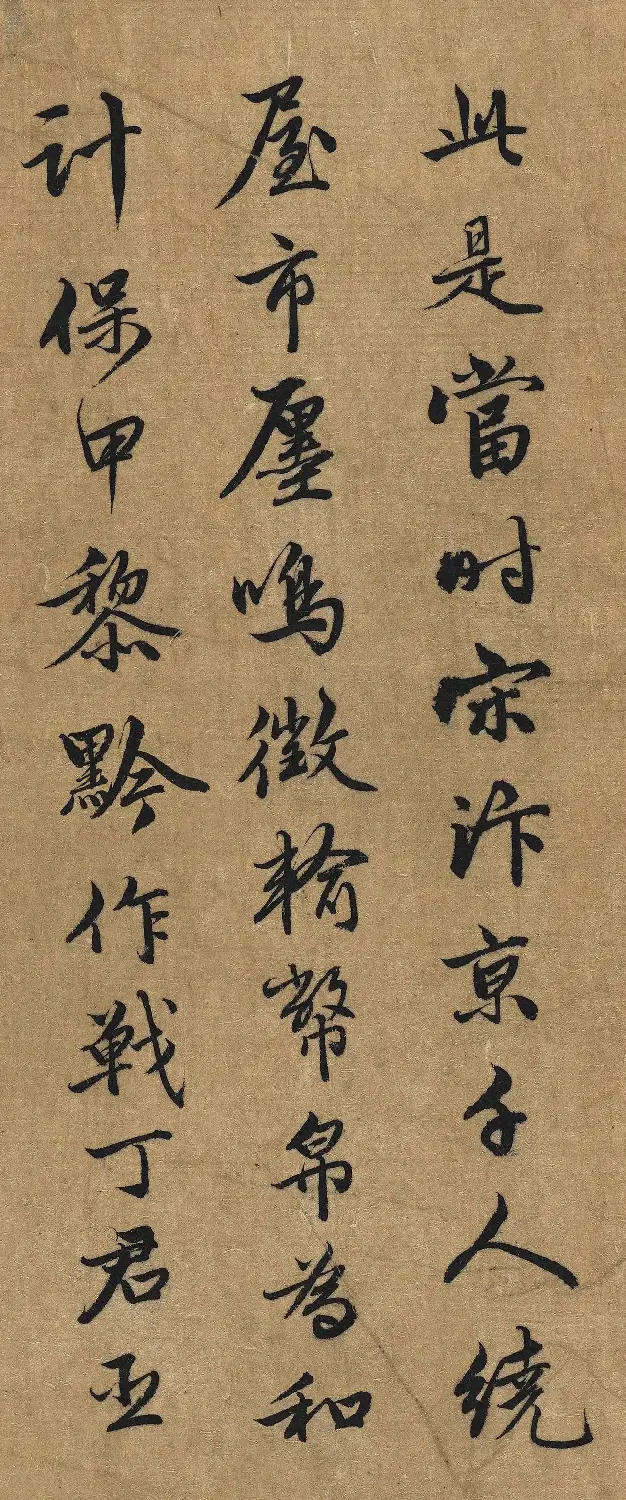 此是當时宋汴京千人繞
屋市廛鳴徵輸幣帛為和
计保甲黎黔作戰丁君丞